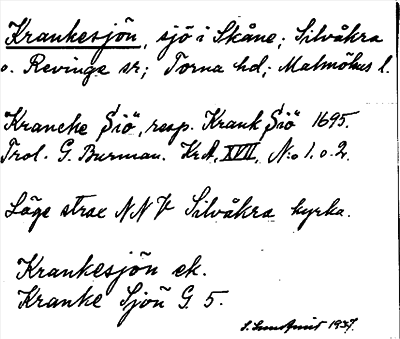 Krankesjön, sjö i Skåne; Silvåkra
o. Revinge sr; Torna hd; Malmöhus l.
Kranche Siö, resp. Krank Siö 1695.
Trol. G. Burman. KrA, XVII, N:o 1. o. 2.
Läge strax NNV Silvåkra kyrka.
Krankesjön ek.
Kranke Sjön G. 5.
S. Sundqvist 1937.